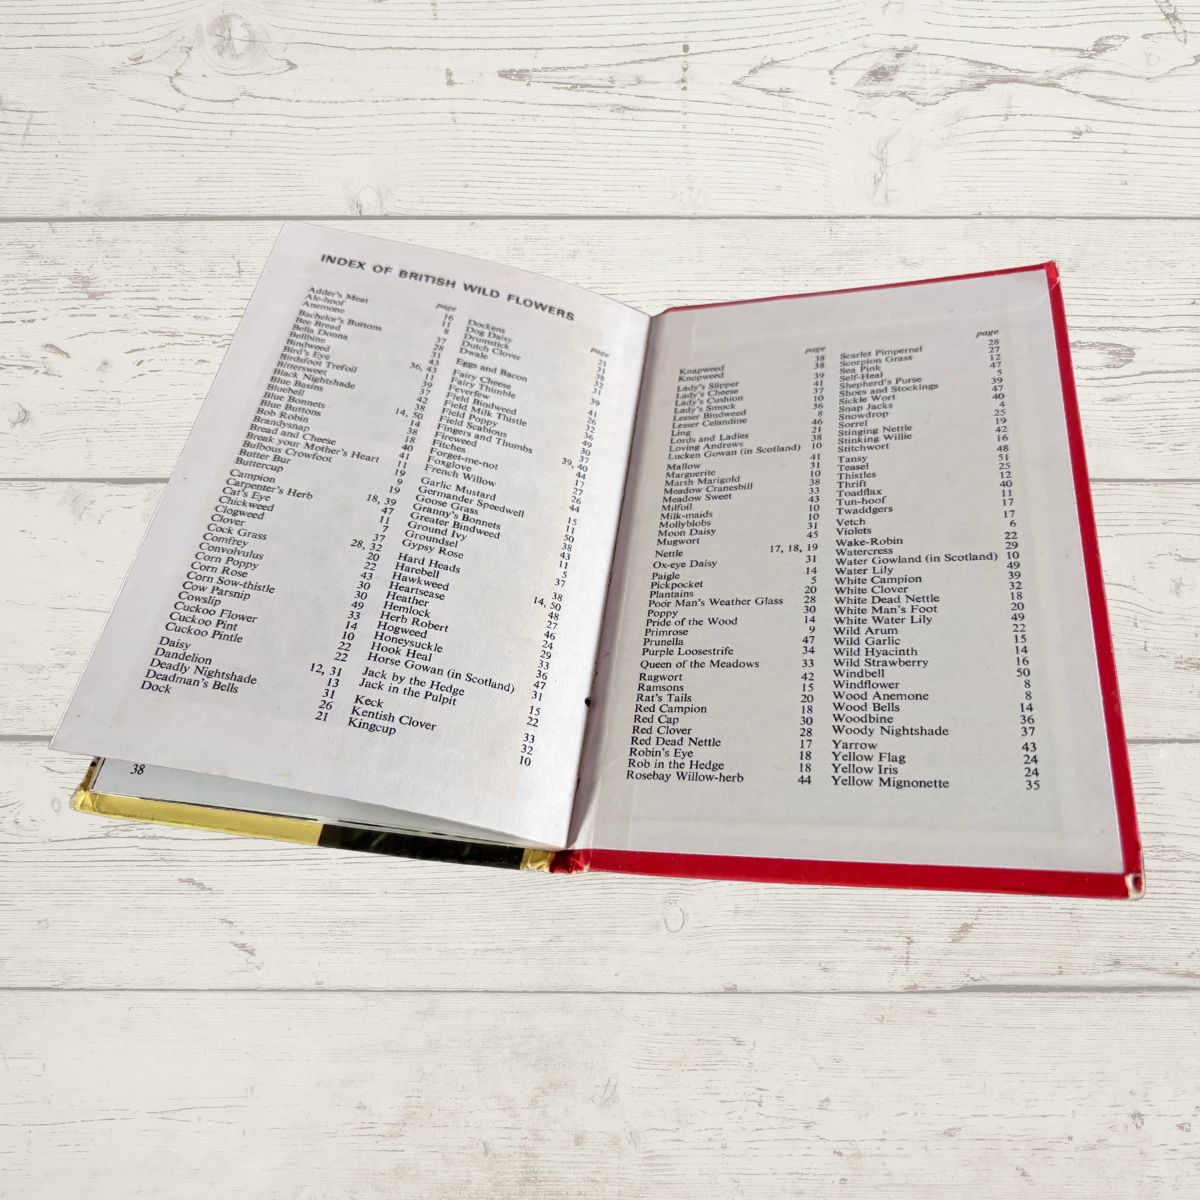 INDEX OF BRITISH WILD FLOWERS
page
Adder's Meat 16
Ale-hoof 11
Anemone 8
Bachelor's Buttons 37
Bee Bread 28
Bella Donna 31
Bellbine 43
Bindweed 36, 43
Bird's Eye 11
Birdsfoot Trefoil 39
Bittersweet 37
Black Nightshade 42
Blue Basins 38
Bluebell 14, 50
Blue Bonnets 14
Blue Buttons 38
Bob Robin 18
Brandysnap 40
Bread and Cheese 41
Break your Mother's Heart 11
Bulbous Crowfoot 19
Butter Bur 9
Buttercup 19
Campion 18, 39
Carpenter's Herb 47
Cat's Eye 11
Chickweed 7
Clogweed 37
Clover 28, 32
Cock Grass 20
Comfrey 22
Convolvulus 43
Corn Poppy 30
Corn Rose 30
Corn Sow-thistle 49
Cow Parsnip 33
Cowslip 14
Cuckoo Flower 10
Cuckoo Pint 22
Cuckoo Pintle 22
Daisy 12, 31
Dandelion 13
Deadly Nightshade 31
Deadman's Bells 26
Dock 21
page
Dockens 21
Dog Daisy 31
Drumstick 38
Dutch Clover 32
Dwale 31
Eggs and Bacon 39
Fairy Cheese 41
Fairy Thimble 26
Feverfew 32
Field Bindweed 36
Field Milk Thistle 49
Field Poppy 30
Field Scabious 37
Fingers and Thumbs 39, 40
Fireweed 44
Fitches 17
Forget-me-not 27
Foxglove 26
French Willow 44
Garlic Mustard 15
Germander Speedwell 11
Goose Grass 50
Granny's Bonnets 38
Greater Bindweed 43
Ground Ivy 11
Groundsel 5
Gypsy Rose 37
Hard Heads 38
Harebell 14, 50
Hawkweed 48
Heartsease 27
Heather 46
Hemlock 24
Herb Robert 29
Hogweed 33
Honeysuckle 36
Hook Heal 47
Horse Gowan (in Scotland) 31
Jack by the Hedge 15
Jack in the Pulpit 22
Keck 33
Kentish Clover 32
Kingcup 10
38
page
Knapweed 38
Knopweed 38
Lady's Slipper 39
Lady's Cheese 41
Lady's Cushion 37
Lady's Smock 10
Lesser Bindweed 36
Lesser Celandine 8
Ling 46
Lords and Ladies 21
Loving Andrews 38
Lucken Gowan (in Scotland) 10
Mallow 41
Marguerite 31
Marsh Marigold 10
Meadow Cranesbill 38
Meadow Sweet 33
Milfoil 43
Milk-maids 10
Mollyblobs 10
Moon Daisy 31
Mugwort 45
Nettle 17, 18, 19
Ox-eye Daisy 31
Paigle 14
Pickpocket 5
Plantains 20
Poor Man's Weather Glass 28
Poppy 30
Pride of the Wood 14
Primrose 9
Prunella 47
Purple Loosestrife 34
Queen of the Meadows 33
Ragwort 42
Ramsons 15
Rat's Tails 20
Red Campion 18
Red Cap 30
Red Clover 28
Red Dead Nettle 17
Robin's Eye 18
Rob in the Hedge 18
Rosebay Willow-herb 44
page
Scarlet Pimpernel 28
Scorpion Grass 27
Sea Pink 12
Self-Heal 47
Shepherd's Purse 5
Shoes and Stockings 39
Sickle Wort 47
Snap Jacks 40
Snowdrop 4
Sorrel 25
Stinging Nettle 19
Stinking Willie 42
Stitchwort 16
Tansy 48
Teasel 51
Thistles 25
Thrift 12
Toadflax 40
Tun-hoof 11
Twaddgers 17
Vetch 17
Violets 6
Wake-Robin 22
Watercress 29
Water Gowland (in Scotland) 10
Water Lily 49
White Campion 39
White Clover 32
White Dead Nettle 18
White Man's Foot 20
White Water Lily 49
Wild Arum 22
Wild Garlic 15
Wild Hyacinth 14
Wild Strawberry 16
Windbell 50
Windflower 8
Wood Anemone 8
Wood Bells 14
Woodbine 36
Woody Nightshade 37
Yarrow 43
Yellow Flag 24
Yellow Iris 24
Yellow Mignonette 35